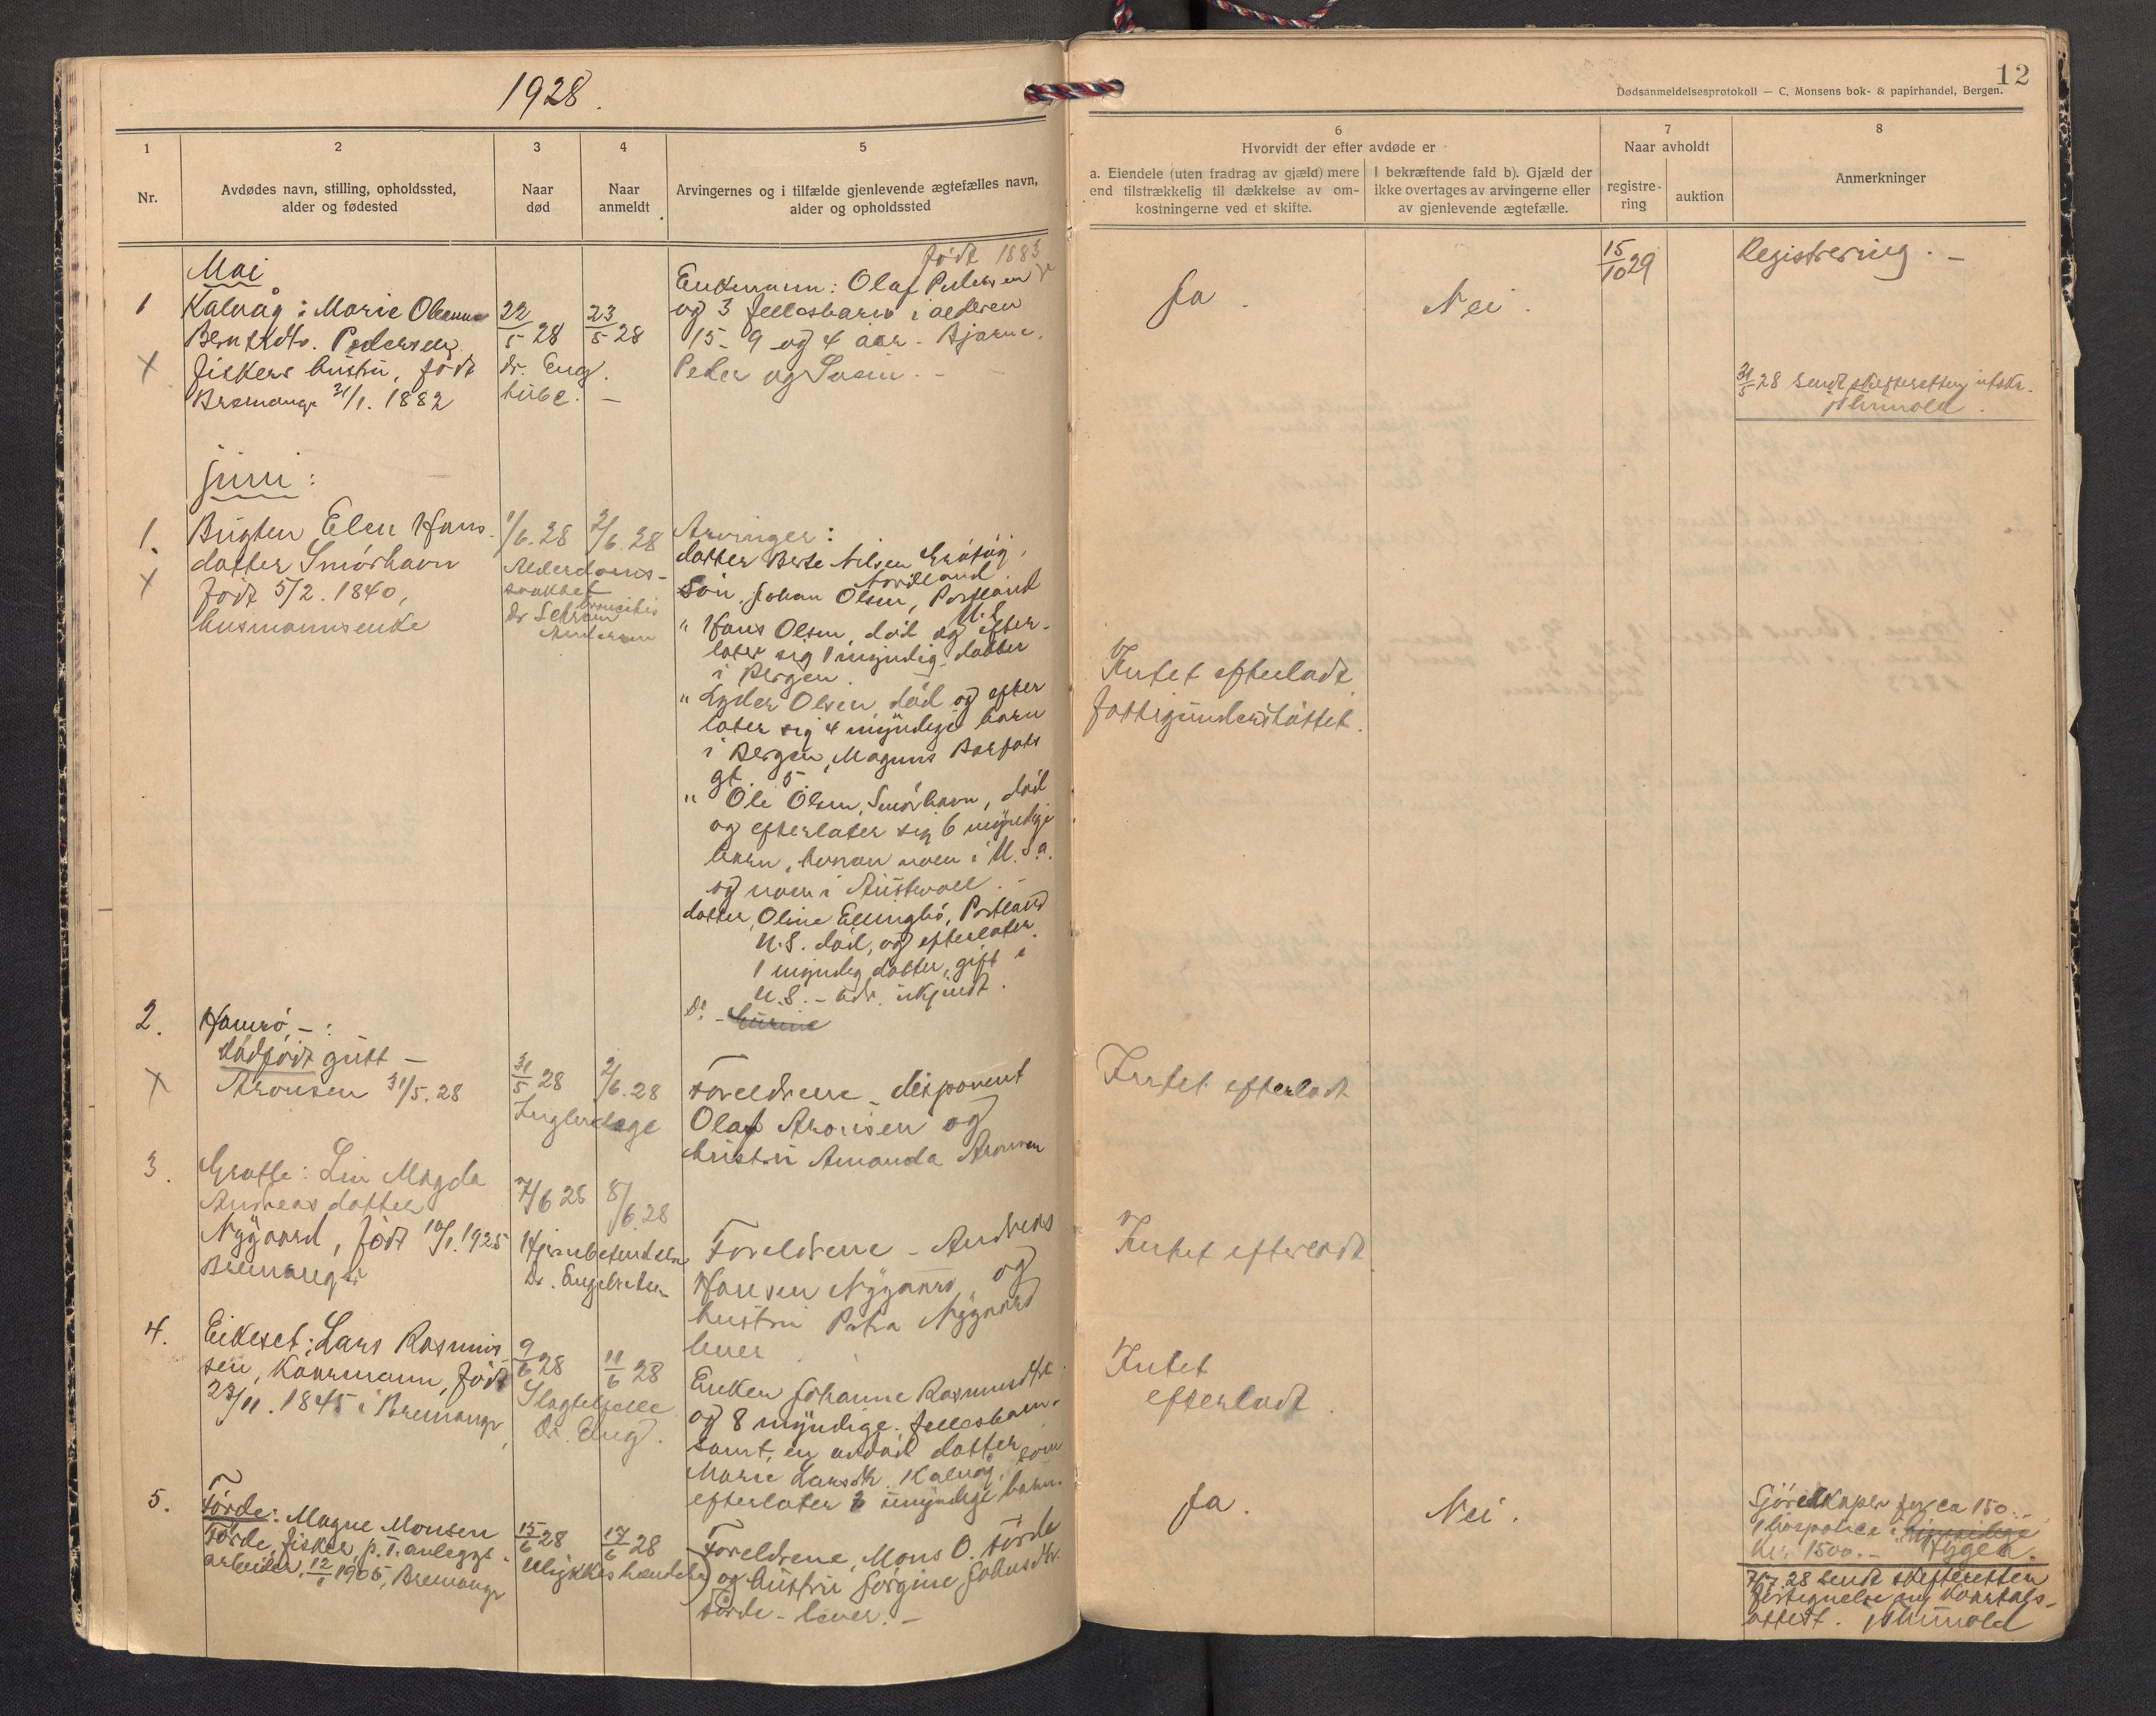 1928.
12
Dødsanmeldelsesprotokoll — C. Monsens bok- & papirhandel, Bergen.
1
Nr.
2
Avdødes navn, stilling, opholdssted,
alder og fødested
3
Naar
død
4
Naar
anmeldt
5
Arvingernes og i tilfælde gjenlevende ægtefælles navn,
alder og opholdssted
6
Hvorvidt der efter avdøde er
a. Eiendele (uten fradrag av gjæld) mere
end tilstrækkelig til dækkelse av om-
kostningerne ved et skifte.
I bekræftende fald b). Gjæld der
ikke overtages av arvingerne eller
av gjenlevende ægtefælle.
7
Naar avholdt
registre-
ring
auktion
8
Anmerkninger
Mai
1
Kalvåg: Marie Oleanna
Berntsdtr. Pedersen
fiskers hustru, født
Bremanger 31/1. 1882
22/5 28
dr. Eng.
tube. —
23/5 28
født 1883
Enkemann: Olaf Pedersen
og 3 fellesbarn i alderen
15 - 9 og 4 aar. Bjarne,
Peder og
Ja.
Nei.
15/10 29
Registrering. —
31/5 28 sendt skifteretten utskr.
juni:
1.
Brigten Elen Hans-
datter Smørhavn
født 5/2. 1840,
husmannsenke
1/6. 28
Alderdoms-
svakhet
broncitis
Dr
Andersen
2/6. 28
Arvinger:
datter Berte Nilsen
Nordland
søn Johan Olsen, Portland
U.S.
" Hans Olsen, død og efter-
later sig 1 myndig datter
i Bergen.
" Lyder Olsen død og efter
later sig 4 myndige barn
i Bergen, Magnus Barfots
gt. 5
" Ole Olsen, Smørhavn, død
og efterlater sig 6 myndige
barn, hvorav noen i U.S.a.
og noen i Austevoll. —
datter, Oline Ellingbø, Portland
U.S. død, og efterlater
1 myndig datter, gift i
U.S. — adr. ukjendt.
Intet efterladt
fattigunderstøttet.
2.
Hamrø, — :
dødfødt gutt —
Aronsen 31/5. 28
31/5 28
2/6. 28
Foreldrene — disponent
Olaf Aronsen og
hustru Amanda Aronsen
Intet efterladt
3.
Grotle: Liv Magda
Andreasdatter
Nygaard, født 10/1. 1925
Bremanger
7/6 28
Hjernebetendelse
Dr. Engelsden
8/6. 28
Foreldrene — Andreas
Hansen Nygaard og
hustru Petra Nygaard
lever
Intet efterladt
4.
Eikeset: Lars Rasmus
sen, Kaarmann, født
23/11. 1845 i Bremanger
9/6 28
Slagtilfelle
Dr. Eng.
11/6 28
Enken Johanne Rasmusdtr.
og 8 myndige fellesbarn.
samt en avdød datter
Marie Larsdtr. Kalvåg, som
efterlater 3 umyndige barn.
Intet
efterladt.
5.
Førde: Magne Monsen
Førde, fisker p.t. anleggs-
arbeider, 12/1 1905, Bremanger
15/6 28
Ulykkeshendelse
17/6 28
Foreldrene, Mons O. Førde
og hustru Jørgine Johnsdtr.
Førde — lever. —
Ja.
Nei.
Sjøredskaper for ca 150.-
1 livspolice i
"Hygea.
Kr. 1500.-
7/7. 28 sendt skifteretten
fortegnelse
attest.